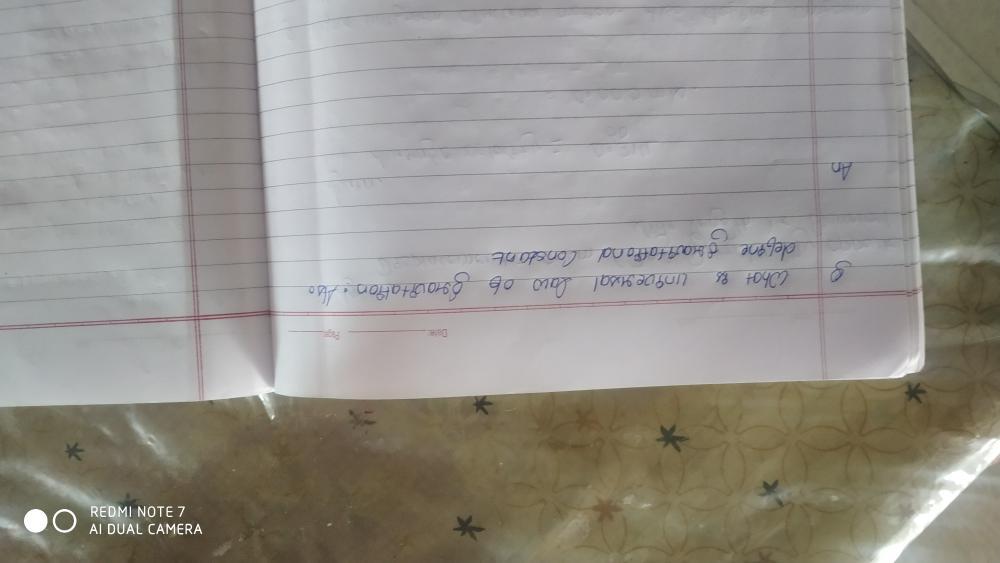 Date: Page:
Q What is universal law of gravitation. Also
define gravitational constant
An
REDMI NOTE 7
AI DUAL CAMERA